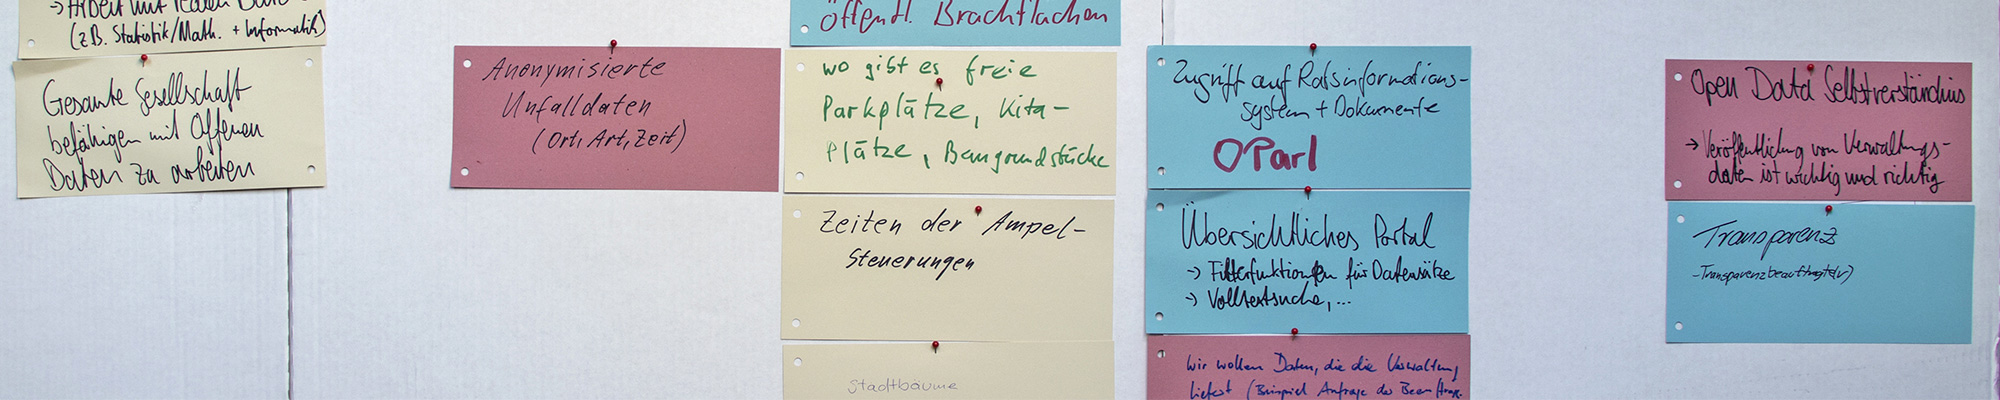 → Arbeit mit realen Daten
(z.B. Statistik/Math. + Informatik)
Gesamte Gesellschaft
befähigen mit Offenen
Daten zu arbeiten
Anonymisierte
Unfalldaten
(Ort, Art, Zeit)
öffentl. Brachflächen
wo gibt es freie
Parkplätze, Kita-
plätze, Baugrundstücke
Zeiten der Ampel-
steuerungen
Stadtbäume
Zugriff auf Ratsinformations-
system + Dokumente
OParl
Übersichtliches Portal
→ Filterfunktionen für Datensätze
→ Volltextsuche, ...
Wir wollen Daten, die die Verwaltung
liefert (Beispiel Anfrage der
Open Data Selbstverständnis
→ Veröffentlichung von Verwaltungs-
daten ist wichtig und richtig
Transparenz
-Transparenzbeauftragte(r)